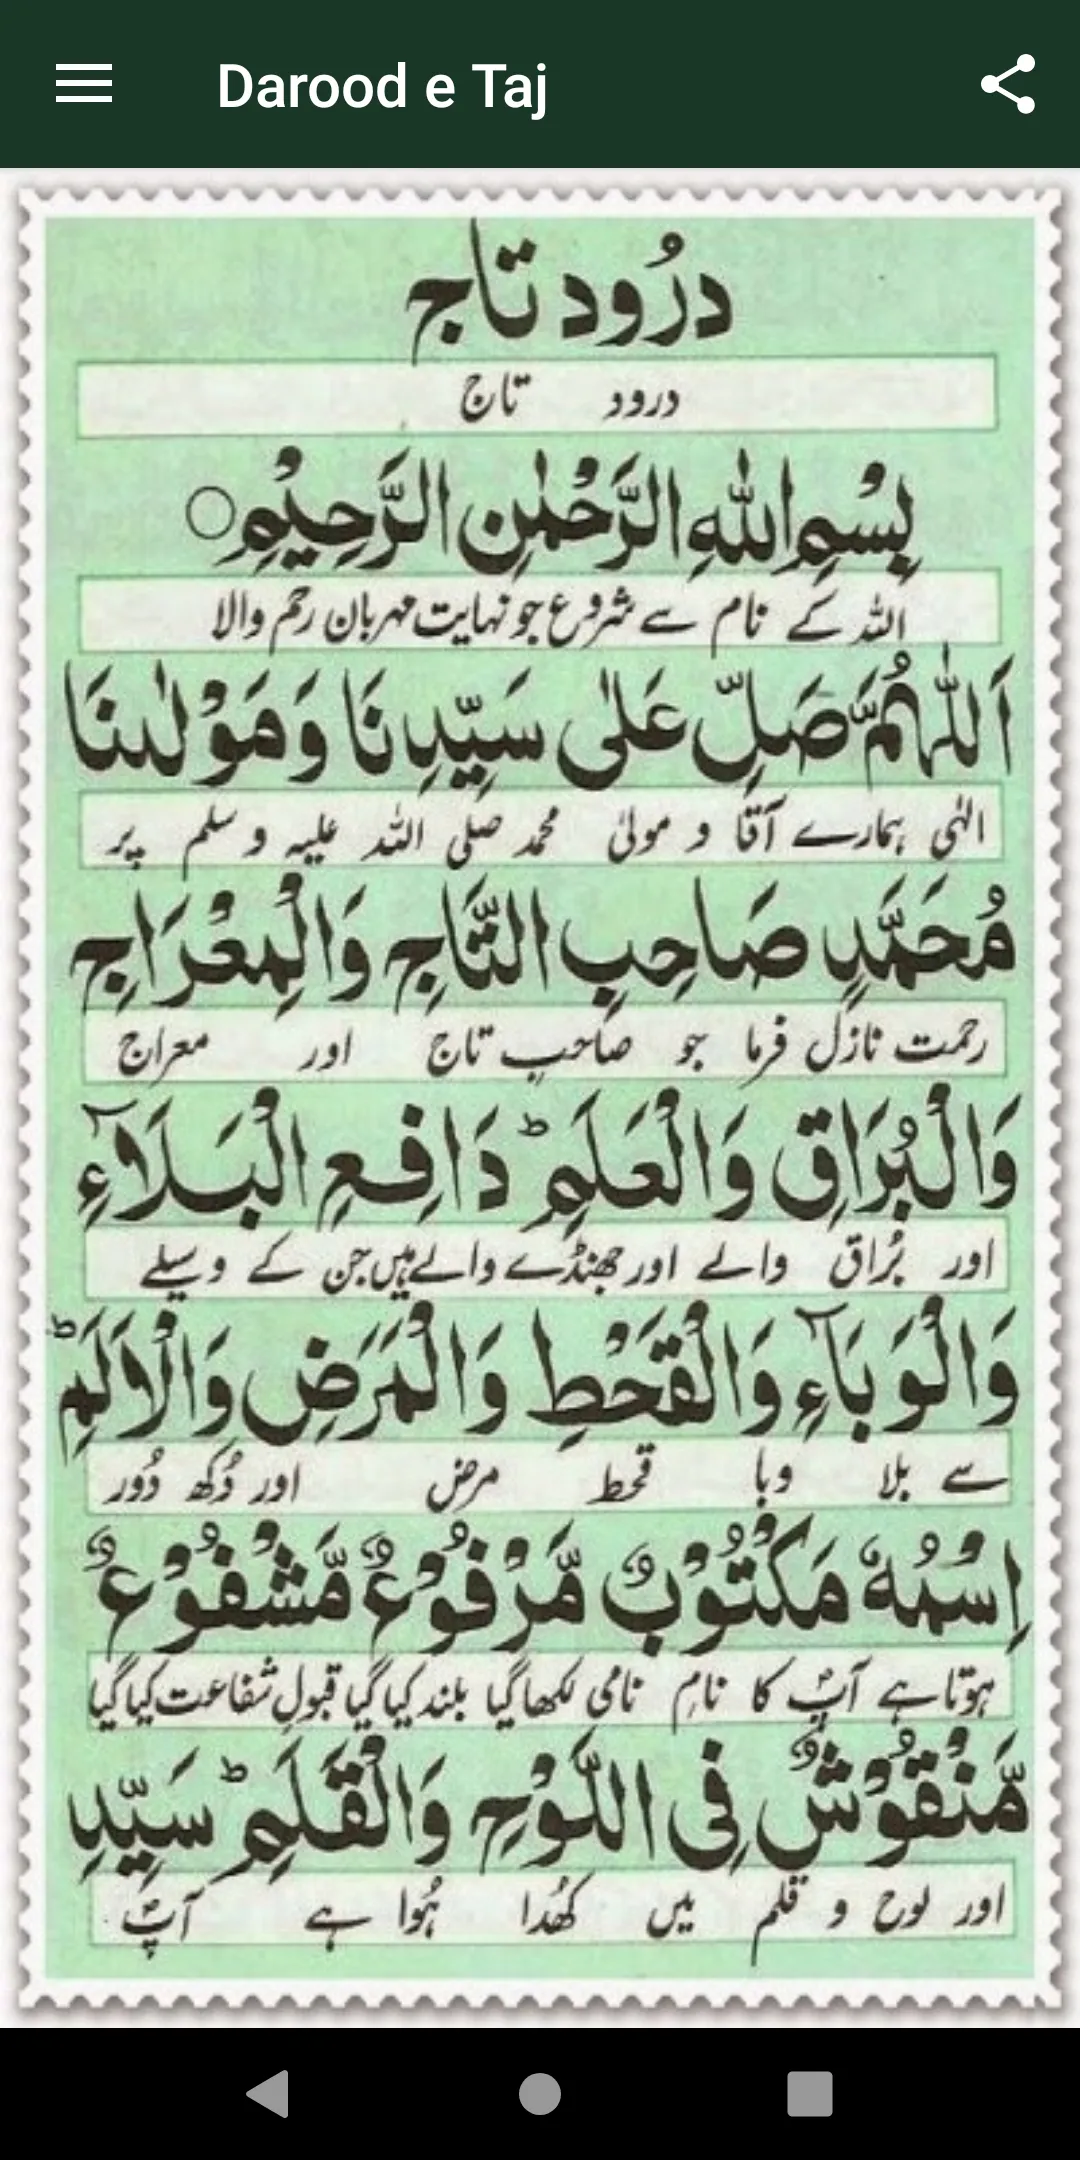 Darood e Taj
درُود تاج
درود تاج
بِسْمِ اللهِ الرَّحْمٰنِ الرَّحِيْمِ○
اللہ کے نام سے شروع جو نہایت مہربان رحم والا
اَللّٰهُمَّ صَلِّ عَلٰى سَيِّدِنَا وَمَوْلٰىنَا
الٰہی ہمارے آقا و مولیٰ محمد صلی اللہ علیہ و سلم پر
مُحَمَّدٍ صَاحِبِ التَّاجِ وَالْمِعْرَاجِ
رحمت نازل فرما جو صاحبِ تاج اور معراج
وَالْبُرَاقِ وَالْعَلَمِ ؕ دَافِعِ الْبَلَآءِ
اور بُراق والے اور جھنڈے والے ہیں جن کے وسیلے
وَالْوَبَآءِ وَالْقَحْطِ وَالْمَرَضِ وَالْاَلَمِ ؕ
سے بلا وبا قحط مرض اور دُکھ دُور
اِسْمُهٗ مَكْتُوْبٌ مَّرْفُوْعٌ مَّشْفُوْعٌ
ہوتا ہے آپؐ کا نامِ نامی لکھا گیا بلند کیا گیا قبولِ شفاعت کیا گیا
مَّنْقُوْشٌ فِى اللَّوْحِ وَالْقَلَمِ ؕ سَيِّدِ
اور لوح و قلم میں کھُدا ہُوا ہے آپؐ